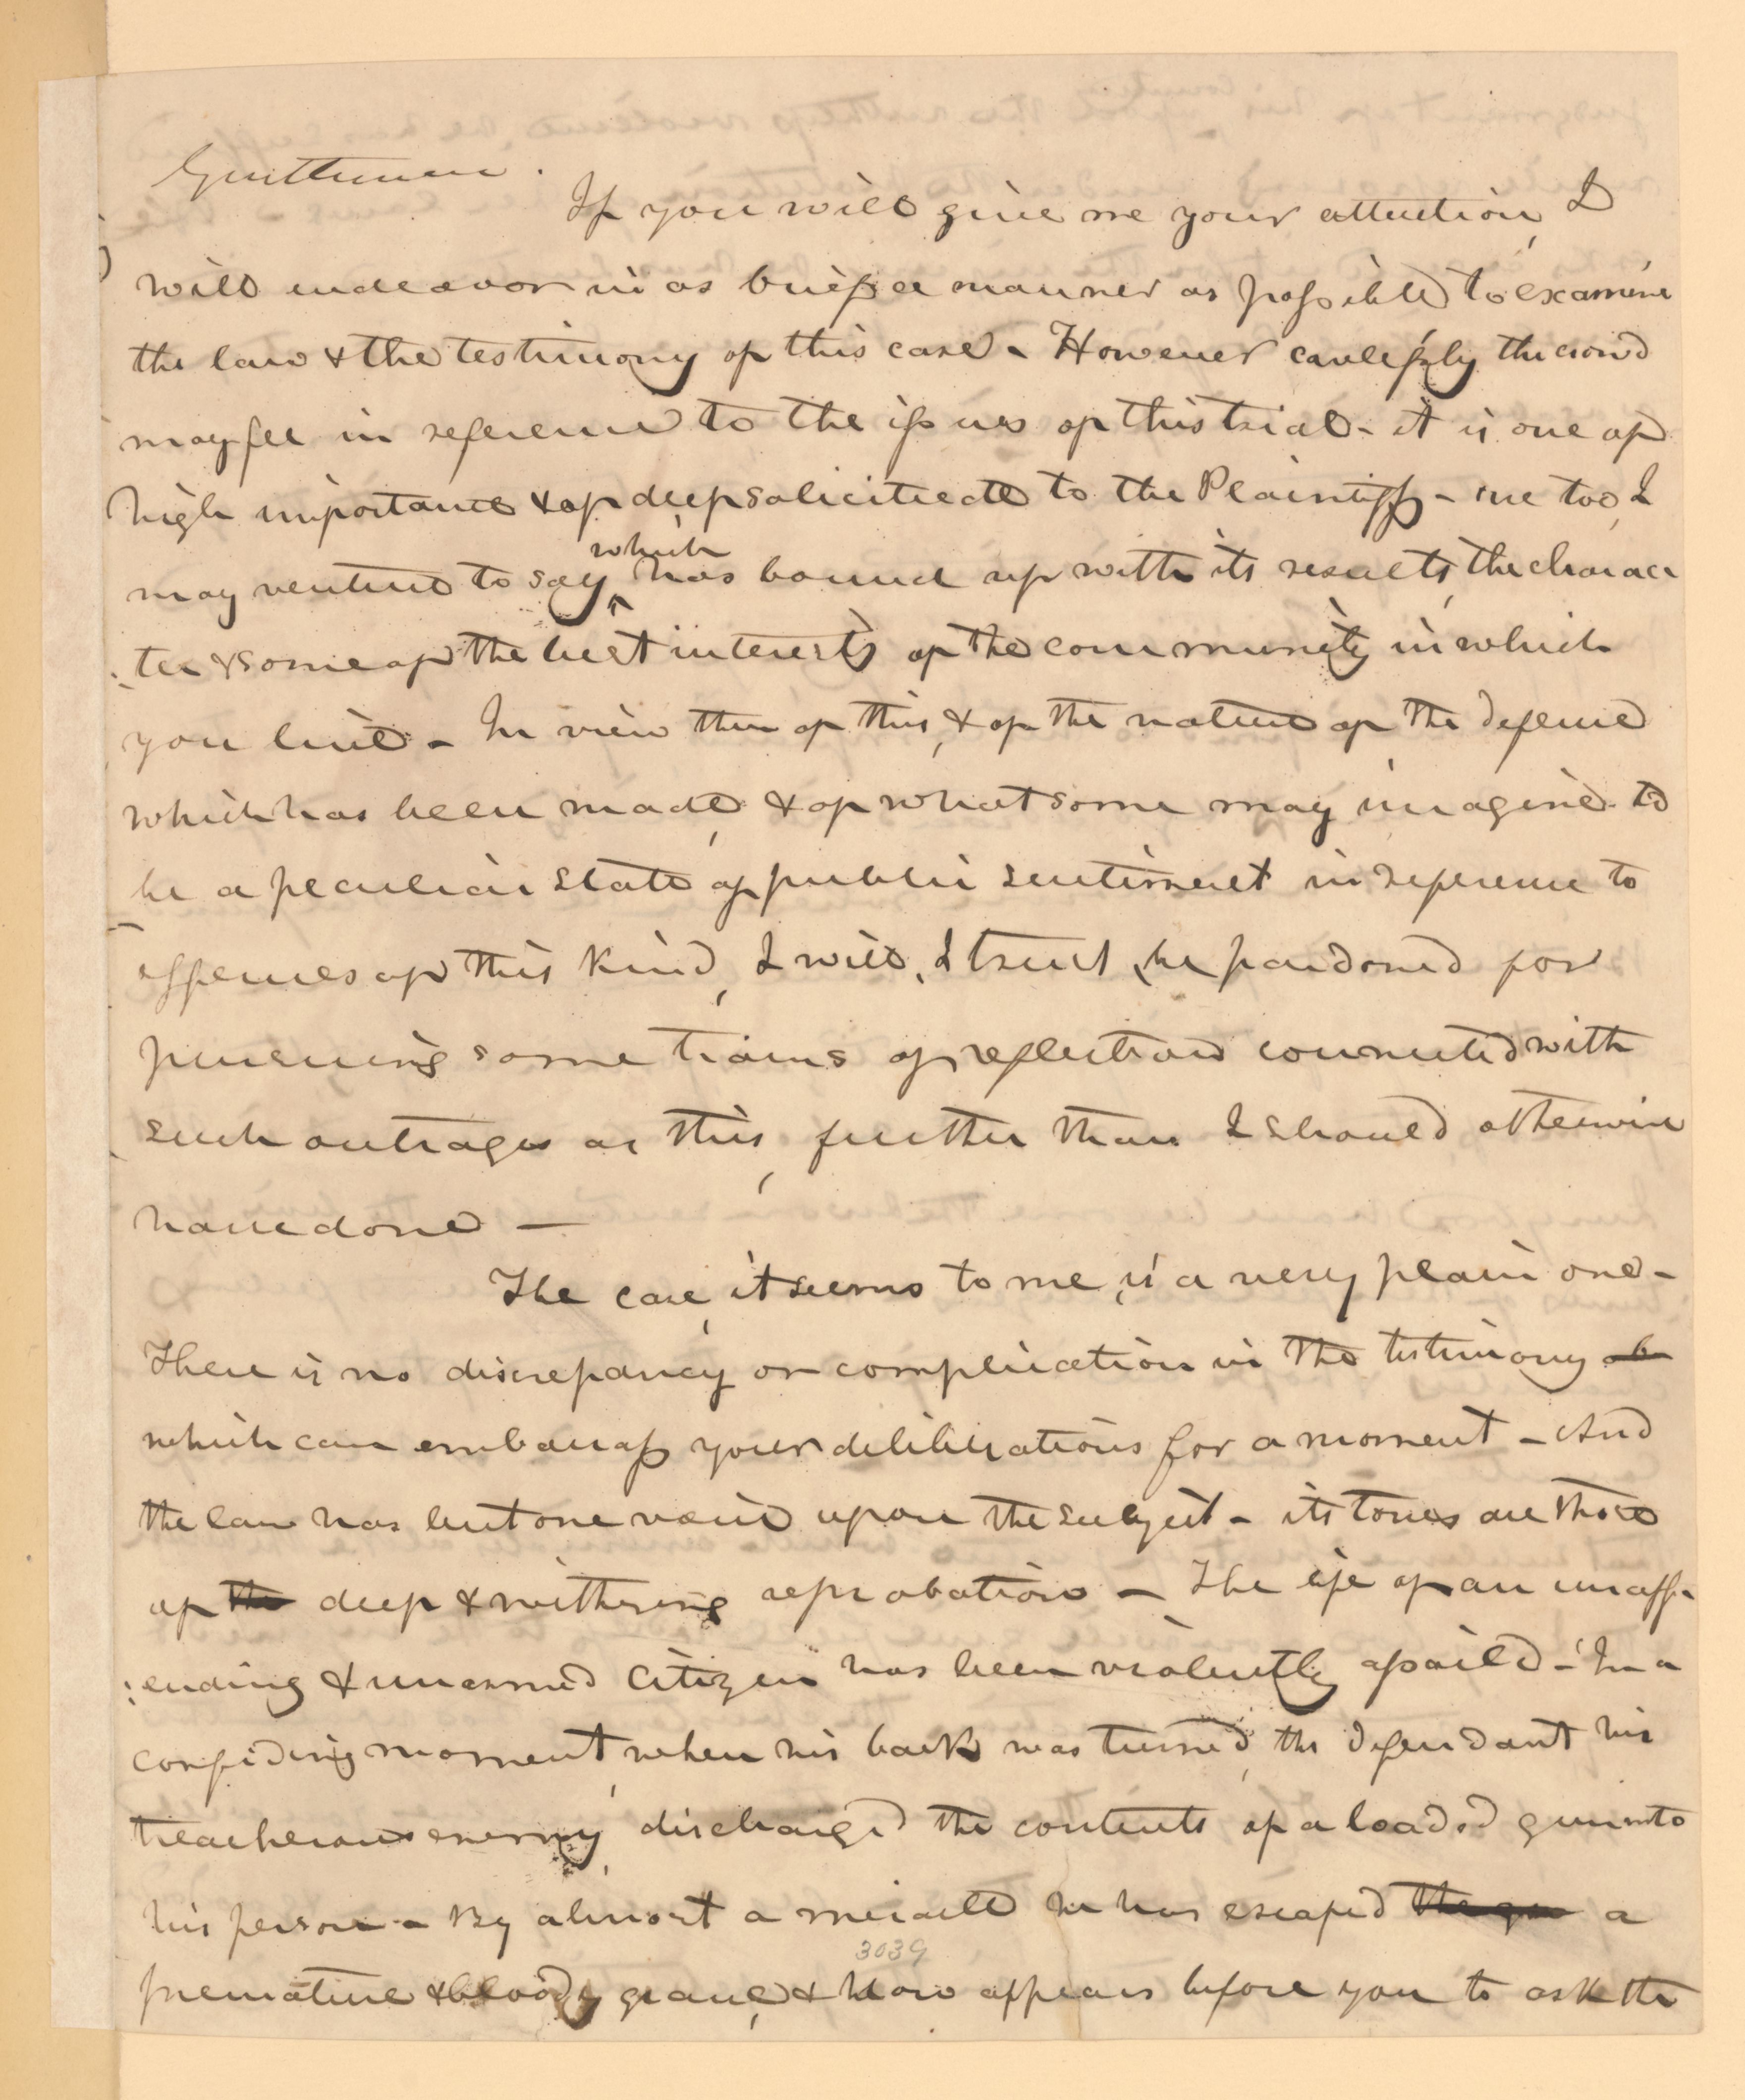 Gentlemen.
If you will give me your attention, I
will endeavor in as brief a manner as possible to examine
the law & the testimony of this case - However carelessly the crowd
may feel in reference to the issues of this trial - it is one of
high importance & of deep solicitude to the Plaintiff - one too, I
which
may venture to say has bound up with its results, the charac
ter & some of the best interests of the community in which
you live - In view then of this, & of the nature of the defence
which has been made, & of what some may imagine to
be a peculiar state of public sentiment in reference to
offences of this kind, I will, I trust, be pardoned for
pursuing some trains of reflection connected with
such outrages as this, further than I should otherwise
have done —
The case, it seems to me, is a very plain one -
There is no discrepancy or complication in the testimony
which can embarrass your deliberations for a moment - And
the law has but one voice upon the subject - its tones are those
of the deep & withering reprobation - The life of an unoff-
ending & unarmed citizen has been violently assailed - In a
confiding moment, when his back was turned, the defendant his
treacherous enemy, discharged the contents of a loaded gun into
his person - By almost a miracle he has escaped a
3039
premature & bloody grave, & now appears before you to ask the